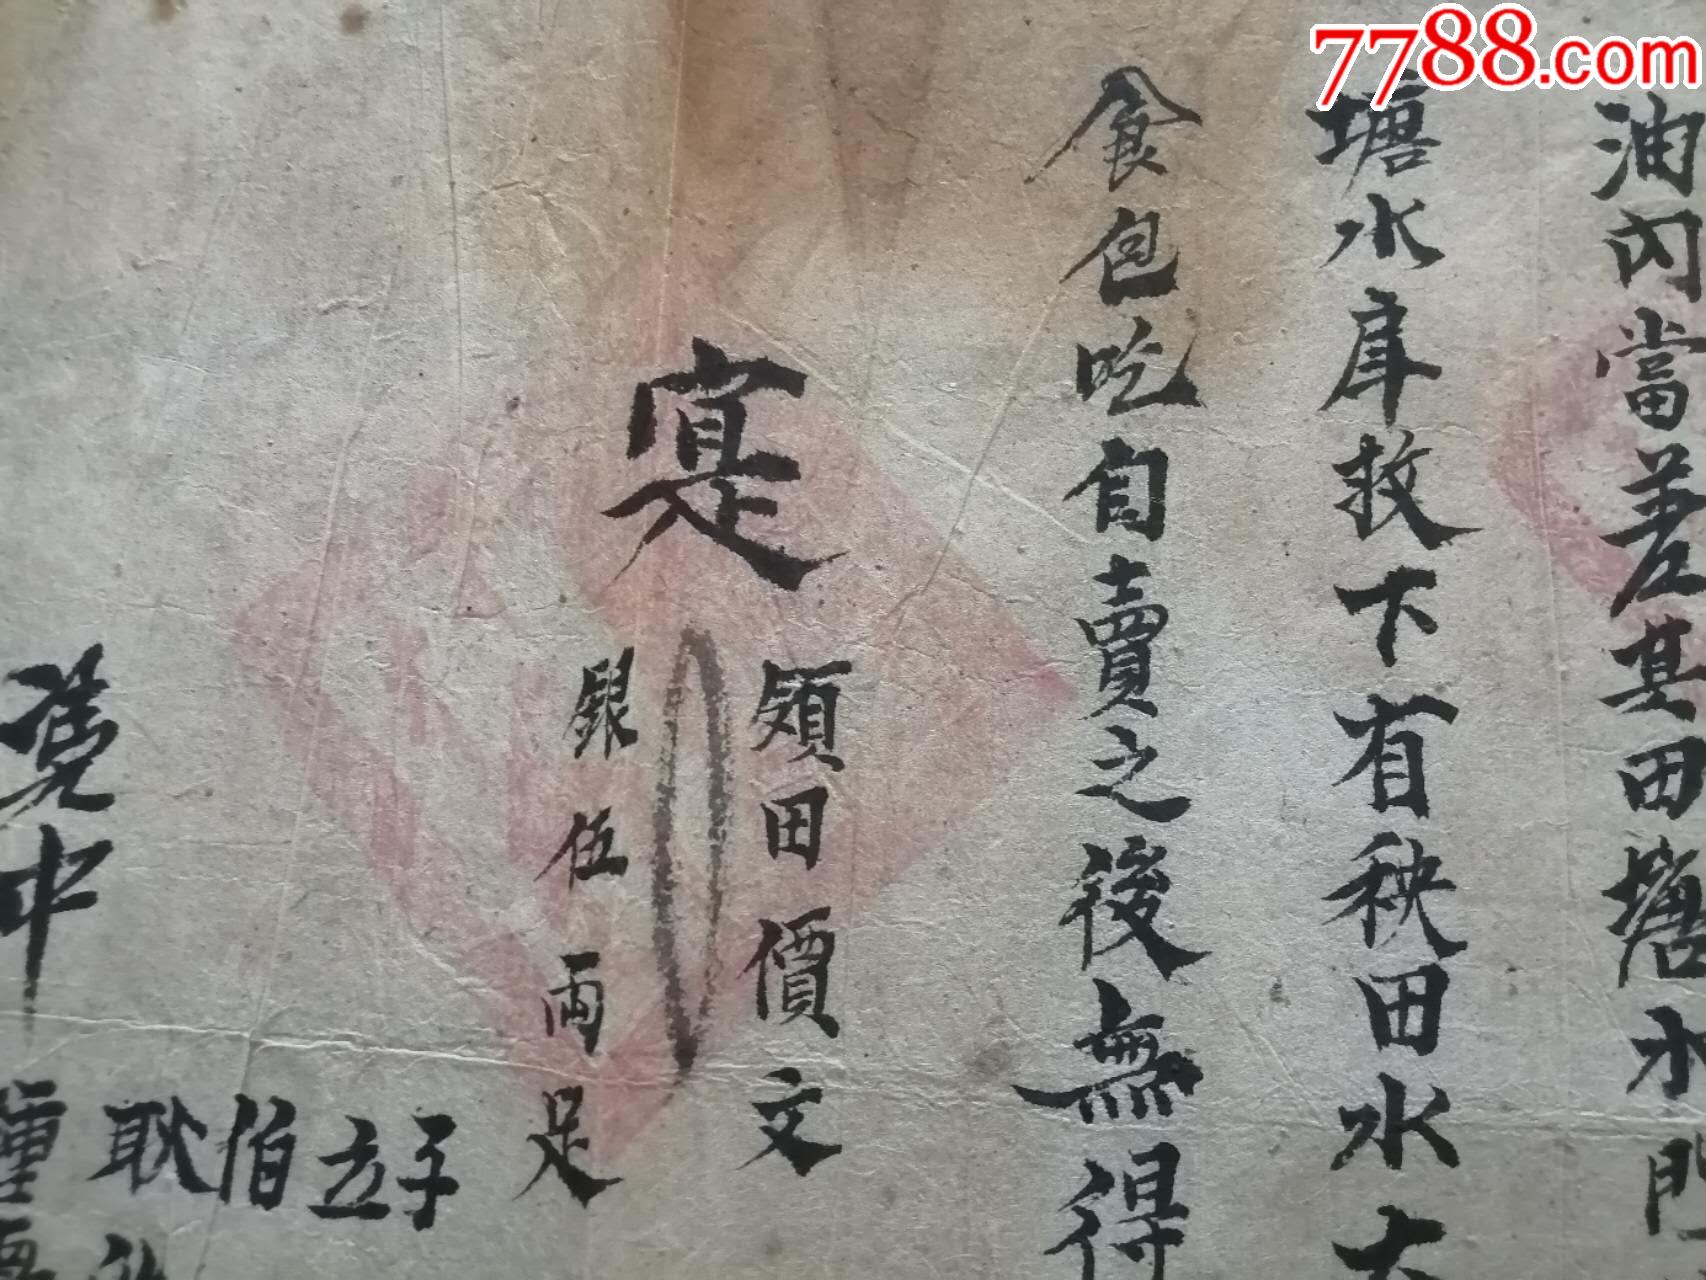 7788.com
油內當差其田塘水門
塘水庠救下有秧田水大
食包吃自賣之後無得
寔
領田價文
銀伍兩足
憑中
子立
伯
耿